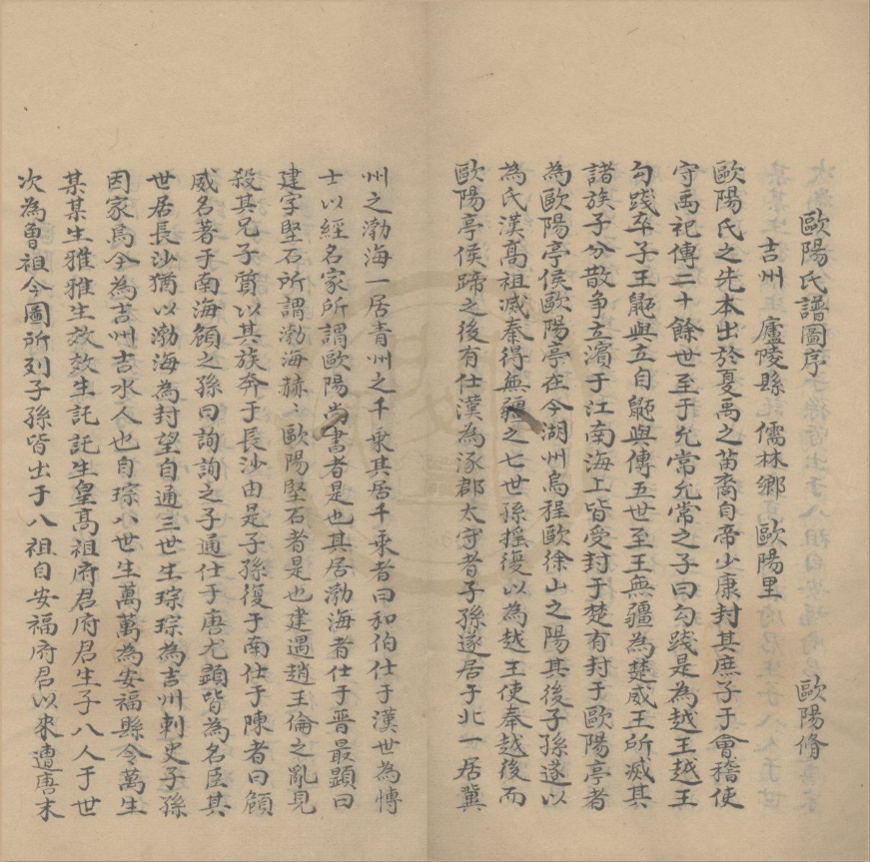 歐陽氏譜圖序　歐陽脩
吉州　廬陵縣　儒林鄉　歐陽里
歐陽氏之先本出於夏禹之苗裔自帝少康封其庶子于會稽使
守禹祀傳二十餘世至于允常允常之子曰勾踐是為越王越王
勾踐卒子王鼫與立自鼫與傳五世至王無疆為楚威王所滅其
諸族子分散争立濱于江南海上皆受封于楚有封于歐陽亭者
為歐陽亭侯歐陽亭在今湖州烏程歐徐山之陽其後子孫遂以
為氏漢髙祖滅秦得無疆之七世孫摇復以為越王使奉越後而
歐陽亭侯蹄之後有仕漢為涿郡太守者子孫遂居于北一居冀
州之渤海一居青州之千乘其居千乘者曰和伯仕于漢世為愽
士以經名家所謂歐陽尚書者是也其居渤海者仕于晋最顕曰
建字堅石所謂渤海赫〻歐陽堅石者是也建遇趙王倫之亂見
殺其兄子質以其族奔于長沙由是子孫復于南仕于陳者曰頠
威名著于南海頠之孫曰詢詢之子通仕于唐尤顕皆為名臣其
世居長沙猶以渤海為封望自通三世生琮琮為吉州刺史子孫
因家焉今為吉州吉水人也自琮八世生萬萬為安福縣令萬生
某某生雅雅生效效生託託生皇髙祖府君府君生子八人于世
次為曾祖今圖所列子孫皆出于八祖自安福府君以來遭唐末